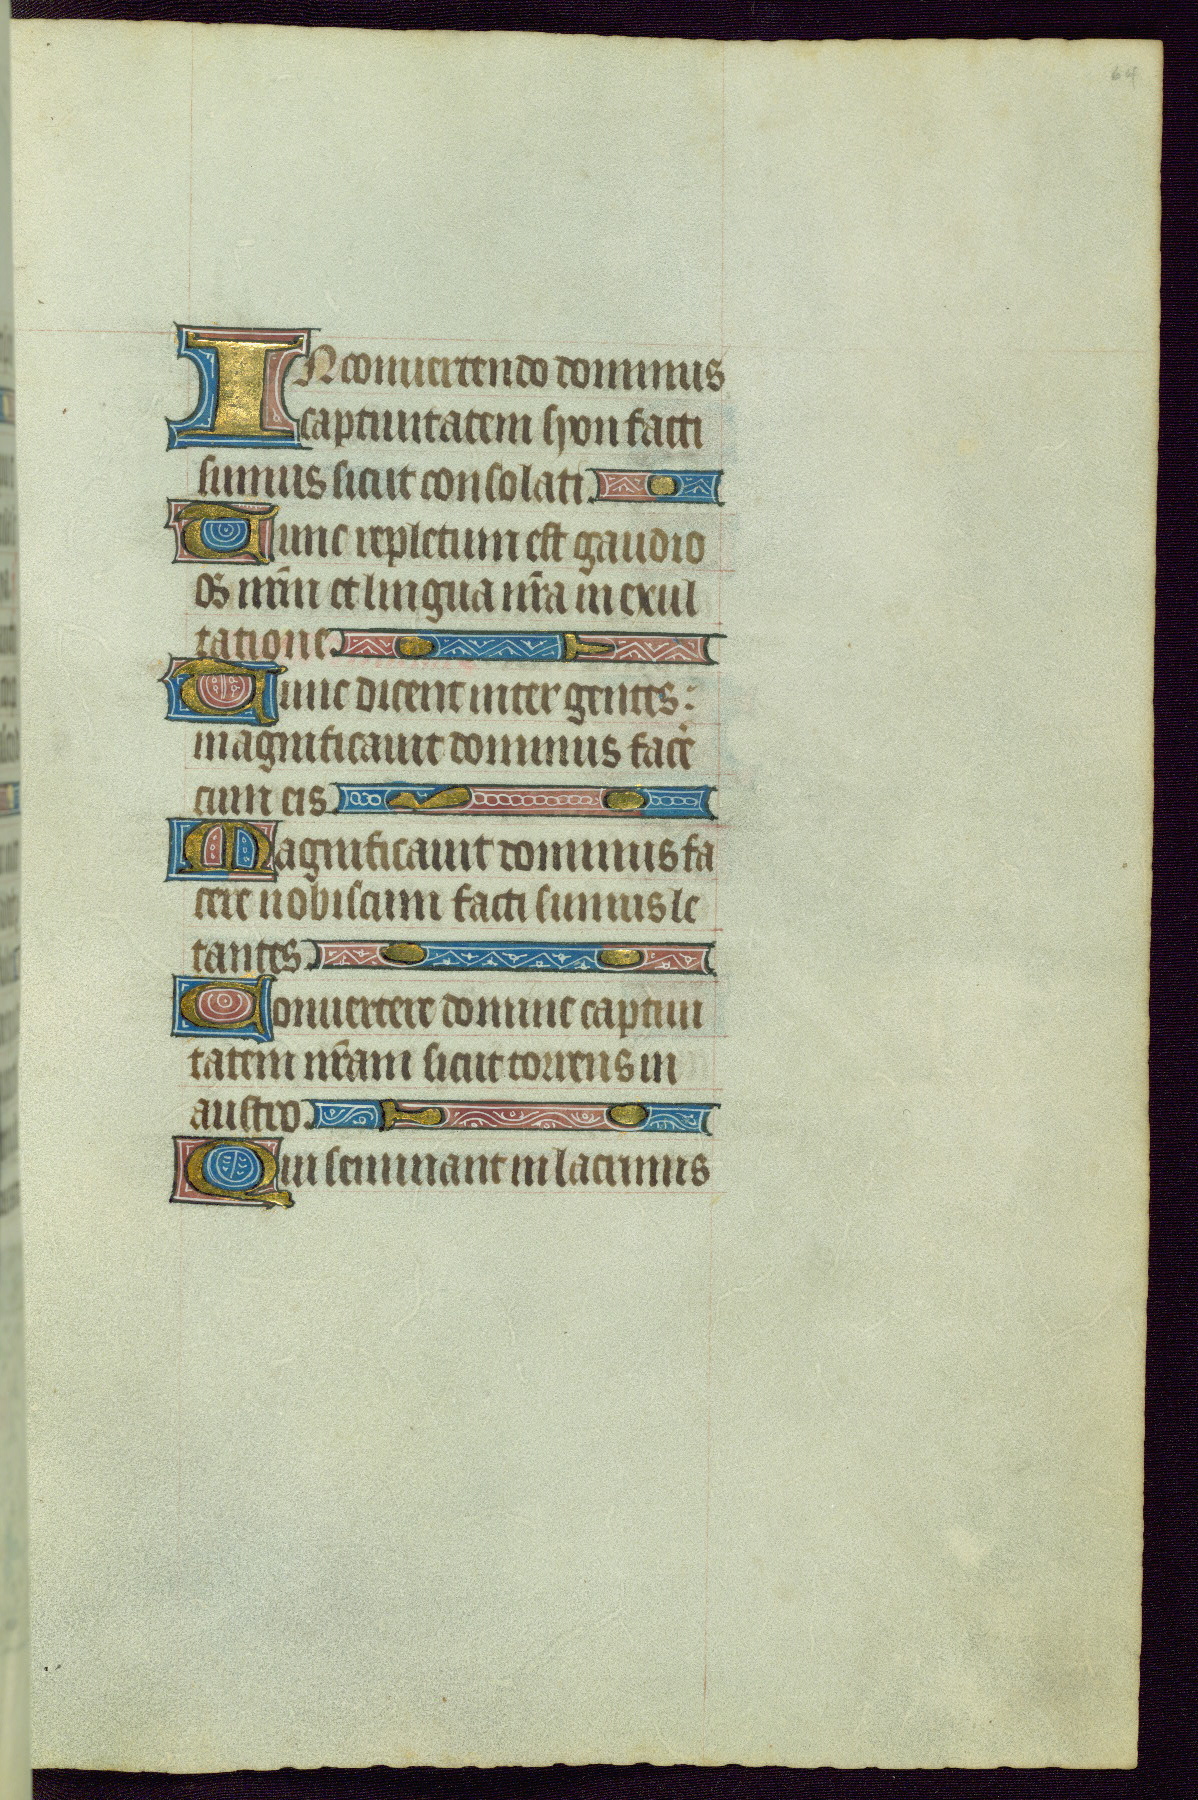 64
IN conuertendo dominus
captiuitatem syon facti
sumus sicut consolati.
Tunc repletum est gaudio
os nr̄m et lingua nr̄a in exul
tatione.
Tunc dicent inter gentes:
magnificauit dominus facere
cum eis.
Magnificauit dominus fa
cere nobiscum facti sumus le
tantes.
Conuertere domine captiui
tatem nr̄am sicut torrens in
austro.
Qui seminant in lacrimis